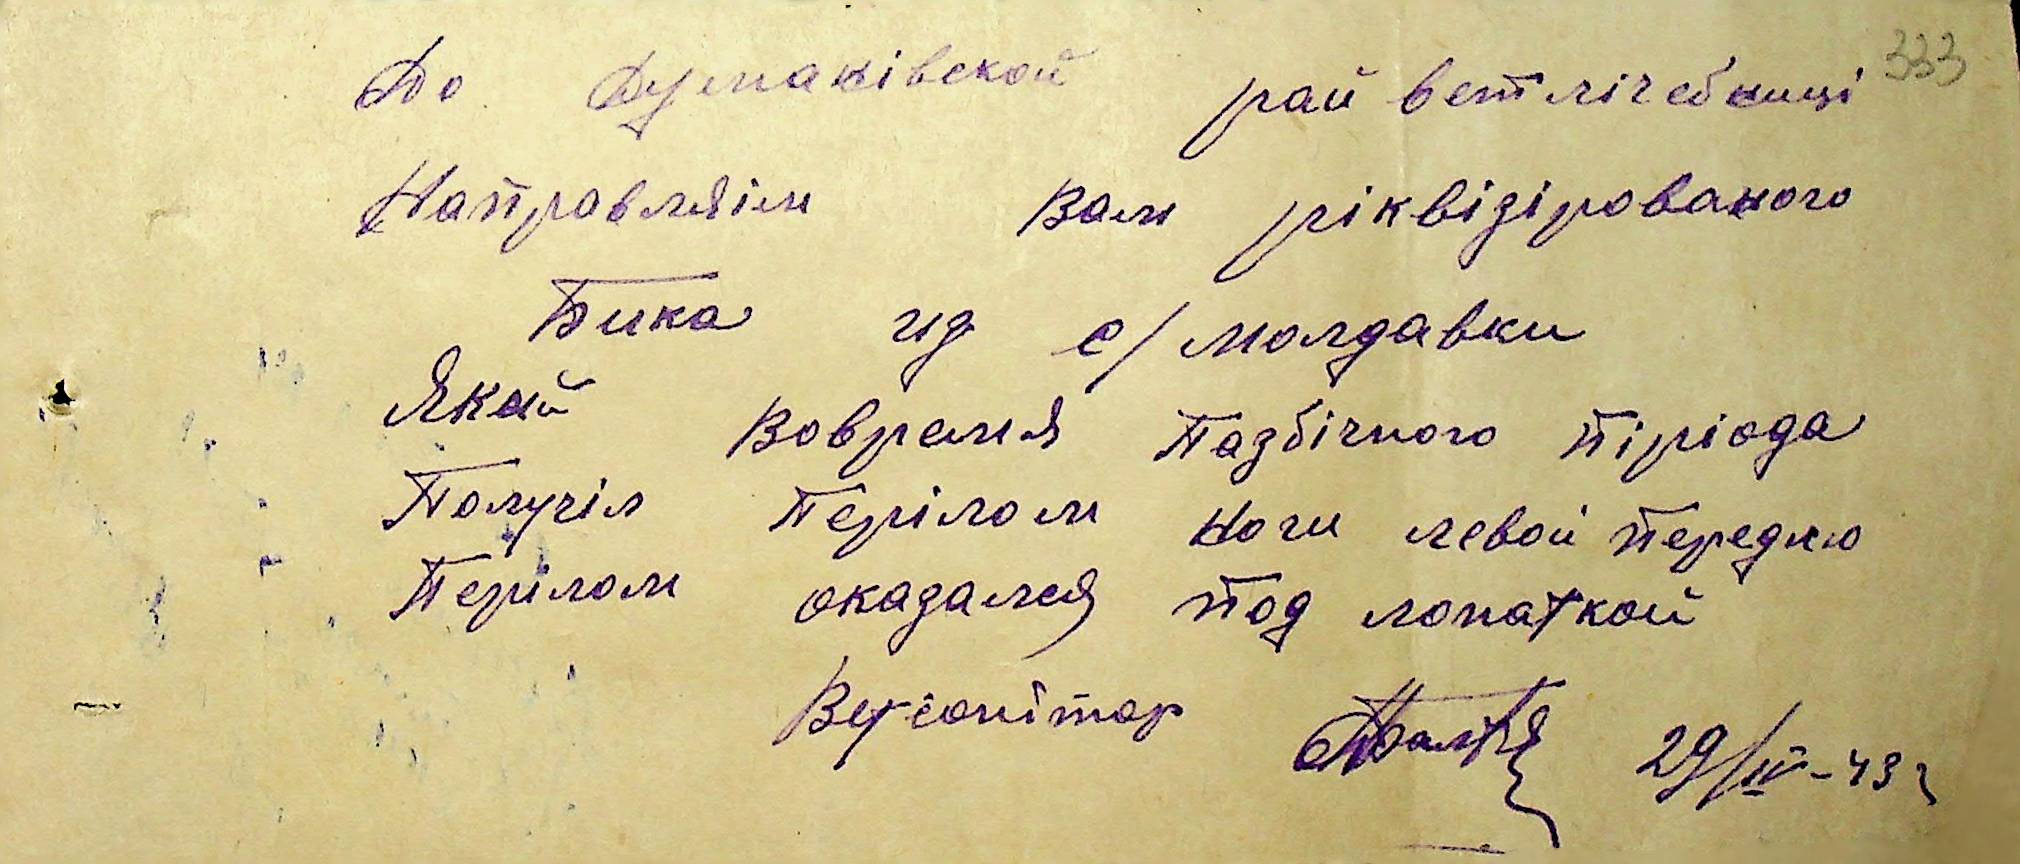 333
До Думаківской рай ветлічебниці
Направляім Вам ріквізірованого
Бика ид с/ молдавки
Якай Вовремя Пазбічного піріода
Получіл Перілом ноги левой передню
Перілом оказался под лопаткой
Ветсанітар 29/IV-43 г